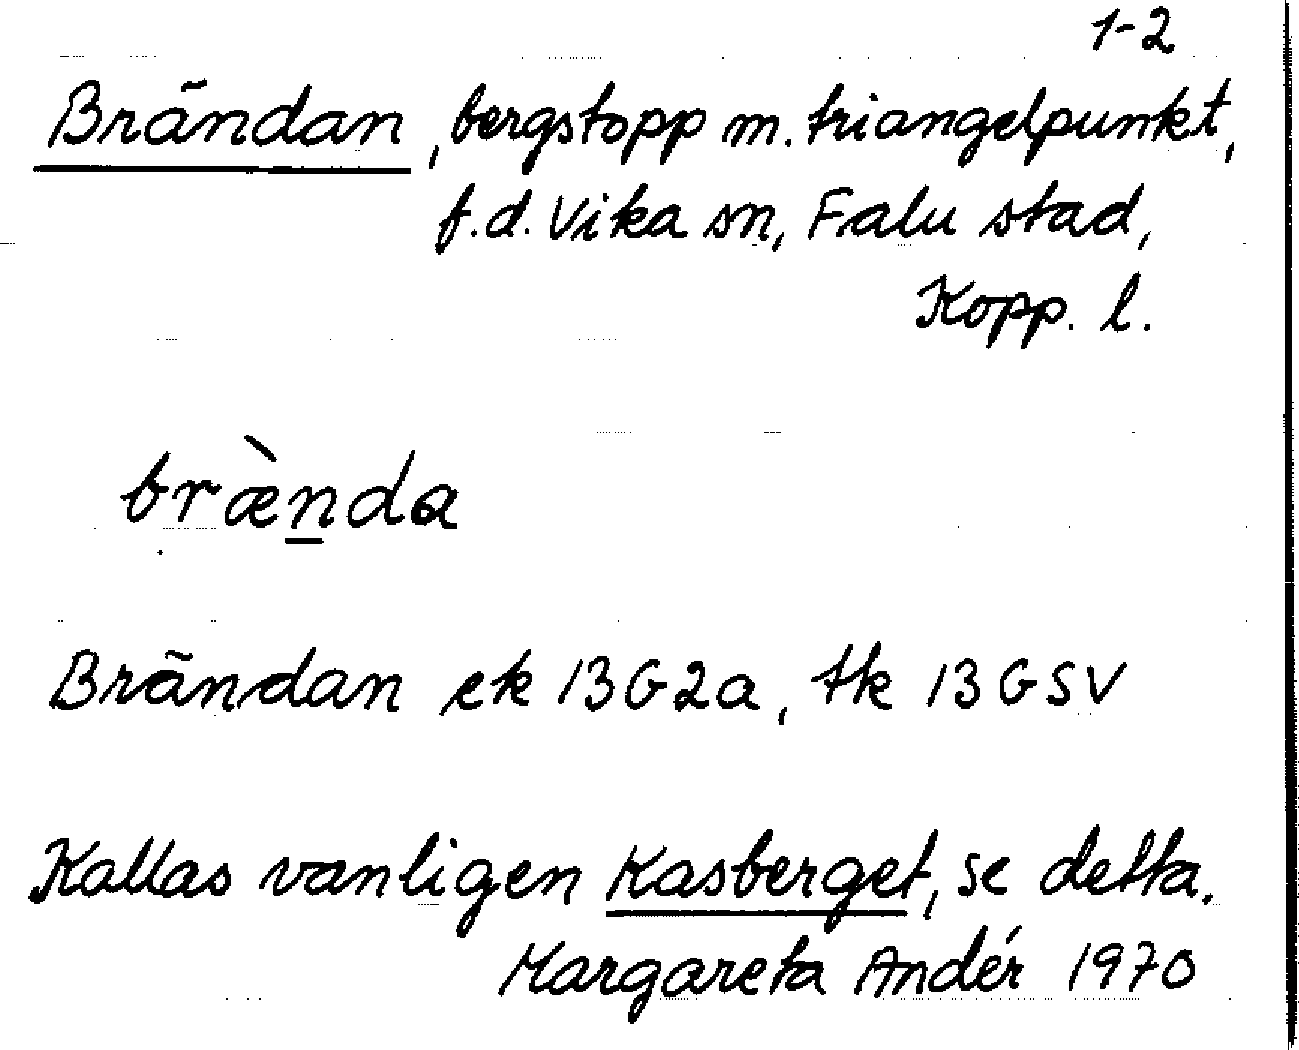 1-2
Brändan, bergstopp m. triangelpunkt,
f.d. Vika sn, Falu stad,
Kopp. l.
bræ̀n̲da
Brändan ek 13G2a, tk 13GSV
Kallas vanligen Kasberget, se detta.
Margareta Andér 1970